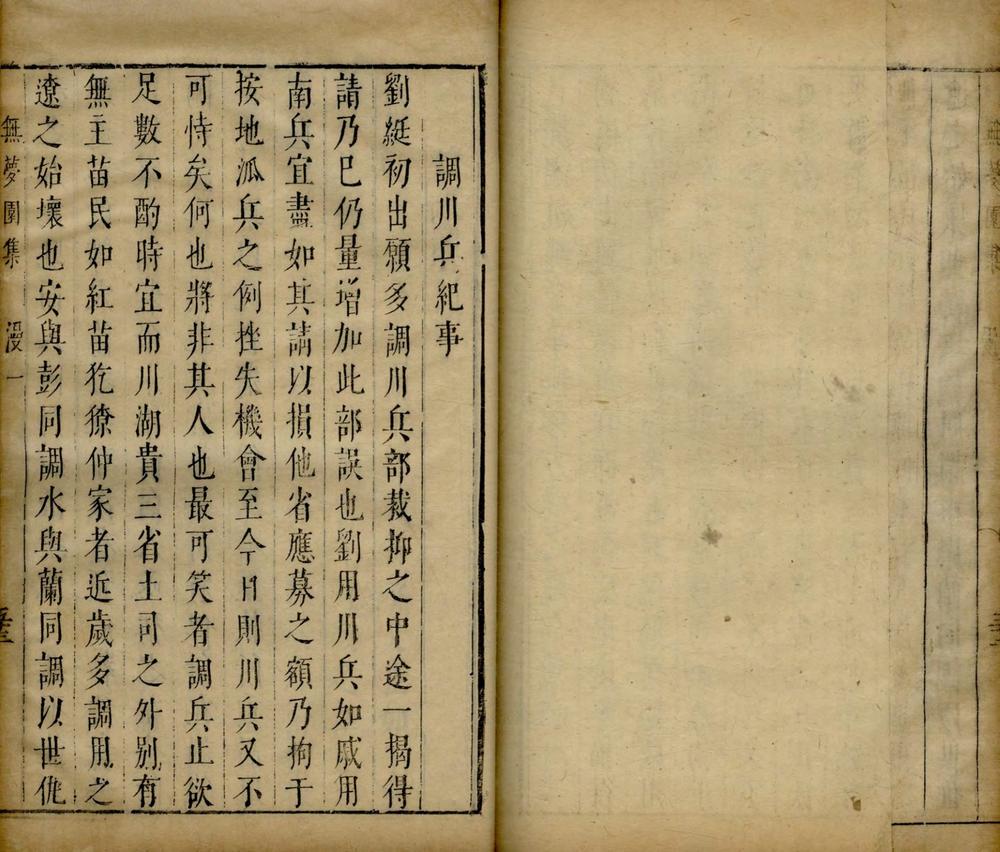 調川兵紀事
劉綎初出願多調川兵部裁抑之中途一揭得
請乃巳仍量增加此部誤也劉用川兵如戚用
南兵宜盡如其請以損他省應募之額乃拘于
按地派兵之例挫失機會至今日則川兵又不
可恃矣何也將非其人也最可笑者調兵止欲
足數不酌時宜而川湖貴三省土司之外别有
無主苗民如紅苗犵獠仲家者近歲多調用之
遼之始壞也安與彭同調水與藺同調以世仇
無夢園集 漫一